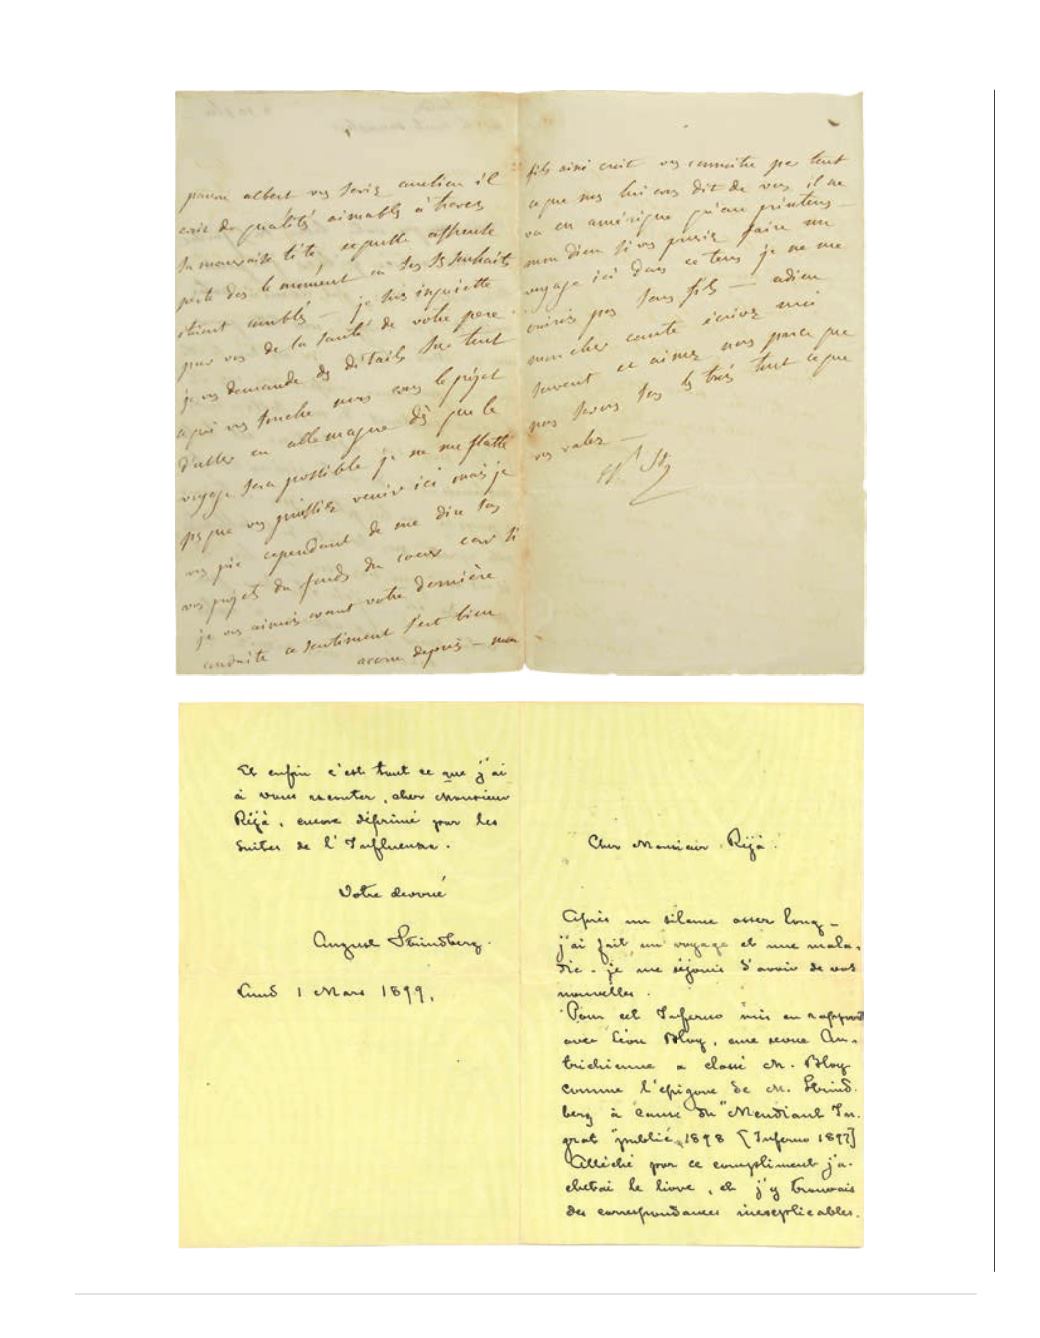 pauvre albert vous seriez
des qualités aimables à travers
sa mauvaise tête
perte dès le moment où ses souhaits
étaient comblés — je suis inquiette
pour vous de la santé de votre père
je vous demande des détails sur tout
ce qui vous touche mais le projet
d'aller en allemagne dès que le
voyage sera possible je ne me flatte
pas que vous puissiez venir ici mais je
vous prie cependant de me dire tous
vos projets du fonds du coeur car si
je vous aimais avant votre dernière
conduite ce sentiment s'est bien
accru depuis — mon
fils ainé croit vous connaitre par tout
ce que nous lui avons dit de vous il ne
va en amérique qu'au printems —
mon dieu si vous puviez faire un
voyage ici dans ce tems je ne me
pas sans fils — adieu
mon cher comte écrivez moi
souvent et aimez nous parce que
nous savons tous les trois tout ce que
vous valez —
Et enfin c'est tout ce que j'ai
à vous raconter, cher Monsieur
Réjà, encore déprimé par les
suites de l'Influenza.
Votre dévoué
August Strindberg.
Lund 1 Mars 1899.
Cher Monsieur Réjà!
Après un silence assez long –
j'ai fait un voyage et une mala-
die – je me réjouis d'avoir de vos
nouvelles.
Pour cet Inferno mis en rapport
avec Léon Bloy, une revue Au-
trichienne a classé M. Bloy
comme l'épigone de M. Strind-
berg à cause du "Mendiant In-
grat" publié 1898 [Inferno 1897]
Alléché par ce compliment j'a-
chetai le livre, et j'y trouvais
des correspondances inexplicables.